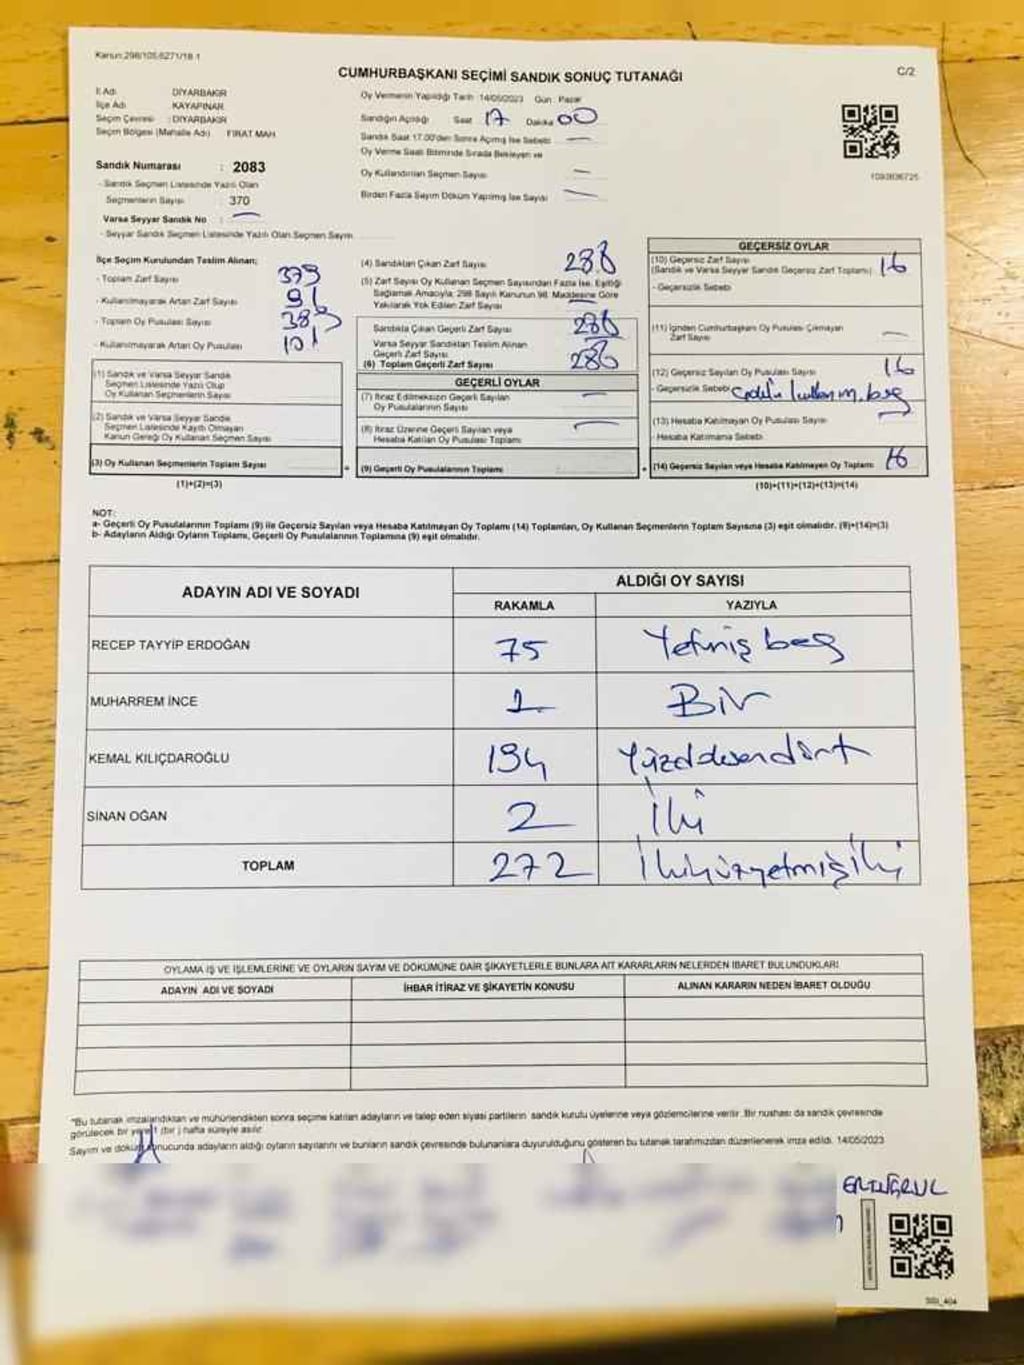 Kanun:298/105,6271/18.1
C/2
CUMHURBAŞKANI SEÇİMİ SANDIK SONUÇ TUTANAĞI
İl Adı DİYARBAKIR
İlçe Adı KAYAPINAR
Seçim Çevresi : DİYARBAKIR
Seçim Bölgesi (Mahalle Adı) FIRAT MAH
Sandık Numarası : 2083
- Sandık Seçmen Listesinde Yazılı Olan
Seçmenlerin Sayısı : 370
Varsa Seyyar Sandık No : —
- Seyyar Sandık Seçmen Listesinde Yazılı Olan Seçmen Sayısı
Oy Vermenin Yapıldığı Tarih 14/05/2023 Gün : Pazar
Sandığın Açıldığı Saat 17 Dakika 00
Sandık Saat 17.00'den Sonra Açılmış İse Sebebi —
Oy Verme Saati Bitiminde Sırada Bekleyen ve
Oy Kullandırılan Seçmen Sayısı —
Birden Fazla Sayım Döküm Yapılmış İse Sayısı —
İlçe Seçim Kurulundan Teslim Alınan;
- Toplam Zarf Sayısı
- Kullanılmayarak Artan Zarf Sayısı
- Toplam Oy Pusulası Sayısı
- Kullanılmayarak Artan Oy Pusulası 101
(1) Sandık ve Varsa Seyyar Sandık
Seçmen Listesinde Yazılı Olup
Oy Kullanan Seçmenlerin Sayısı
(2) Sandık ve Varsa Seyyar Sandık
Seçmen Listesinde Kayıtlı Olmayan
Kanun Gereği Oy Kullanan Seçmen Sayısı
(3) Oy Kullanan Seçmenlerin Toplam Sayısı
(1)+(2)=(3)
(4) Sandıktan Çıkan Zarf Sayısı 288
(5) Zarf Sayısı Oy Kullanan Seçmen Sayısından Fazla İse, Eşitliği
Sağlamak Amacıyla, 298 Sayılı Kanunun 98. Maddesine Göre
Yakılarak Yok Edilen Zarf Sayısı —
Sandıkta Çıkan Geçerli Zarf Sayısı 288
Varsa Seyyar Sandıktan Teslim Alınan
Geçerli Zarf Sayısı
(6) Toplam Geçerli Zarf Sayısı 288
GEÇERLİ OYLAR
(7) İtiraz Edilmeksizin Geçerli Sayılan
Oy Pusulalarının Sayısı —
(8) İtiraz Üzerine Geçerli Sayılan veya
Hesaba Katılan Oy Pusulası Toplamı —
+ (9) Geçerli Oy Pusulalarının Toplamı
GEÇERSİZ OYLAR
(10) Geçersiz Zarf Sayısı 16
(Sandık ve Varsa Seyyar Sandık Geçersiz Zarf Toplamı)
- Geçersizlik Sebebi
(11) İçinden Cumhurbaşkanı Oy Pusulası Çıkmayan
Zarf Sayısı —
(12) Geçersiz Sayılan Oy Pusulası Sayısı 16
- Geçersizlik Sebebi
(13) Hesaba Katılmayan Oy Pusulası Sayısı
- Hesaba Katılmama Sebebi
+ (14) Geçersiz Sayılan veya Hesaba Katılmayan Oy Toplamı 16
(10)+(11)+(12)+(13)=(14)
NOT:
a- Geçerli Oy Pusulalarının Toplamı (9) ile Geçersiz Sayılan veya Hesaba Katılmayan Oy Toplamı (14) Toplamları, Oy Kullanan Seçmenlerin Toplam Sayısına (3) eşit olmalıdır. (9)+(14)=(3)
b- Adayların Aldığı Oyların Toplamı, Geçerli Oy Pusulalarının Toplamına (9) eşit olmalıdır.
ADAYIN ADI VE SOYADI ALDIĞI OY SAYISI
RAKAMLA YAZIYLA
RECEP TAYYİP ERDOĞAN 75 Yetmiş beş
MUHARREM İNCE 1 Bir
KEMAL KILIÇDAROĞLU 194 Yüzddoksandört
SİNAN OĞAN 2 İki
TOPLAM 272 İkiyüzyetmişiki
OYLAMA İŞ VE İŞLEMLERİNE VE OYLARIN SAYIM VE DÖKÜMÜNE DAİR ŞİKAYETLERLE BUNLARA AİT KARARLARIN NELERDEN İBARET BULUNDUKLARI
ADAYIN ADI VE SOYADI İHBAR İTİRAZ VE ŞİKAYETİN KONUSU ALINAN KARARIN NEDEN İBARET OLDUĞU
*Bu tutanak imzalandıktan ve mühürlendikten sonra seçime katılan adayların ve talep eden siyasi partilerin sandık kurulu üyelerine veya gözlemcilerine verilir. Bir nushası da sandık çevresinde
görülecek bir yere 1 (bir ) hafta süreyle asılır.
Sayım ve döküm sonucunda adayların aldığı oyların sayılarını ve bunların sandık çevresinde bulunanlara duyurulduğunu gösteren bu tutanak tarafımızdan düzenlenerek imza edildi. 14/05/2023
ERTUĞRUL